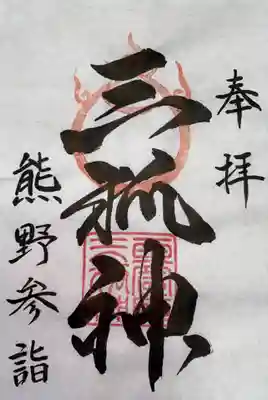 奉拝
三狐神
熊野参詣